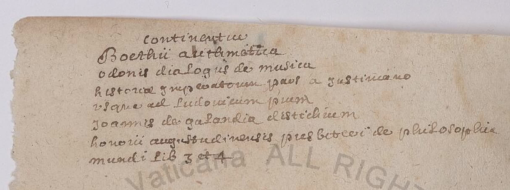 continentur
Boethii arithmetica
odonis dialogus de musica
historiæ Imperatorum pars a Justiniano
usque ad Ludovicum pium
Joannis de galandia distichium
honorii augustudinensis presbiteri de philosophia
mundi lib 3 et 4
Vaticana ALL RIGH